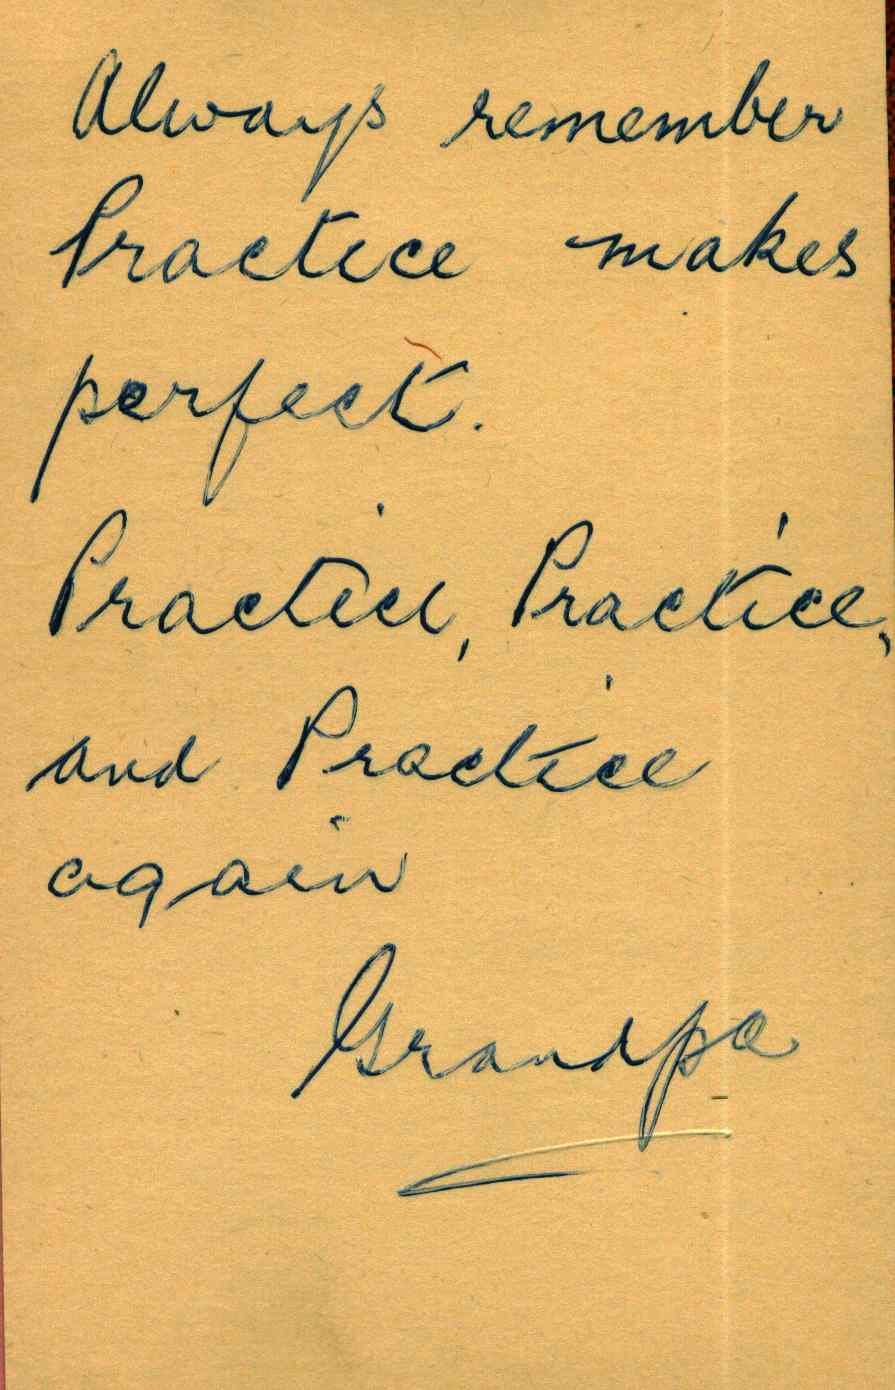 Always remember
Practice makes
perfect.
Practice, Practice,
and Practice
again
Grandpa